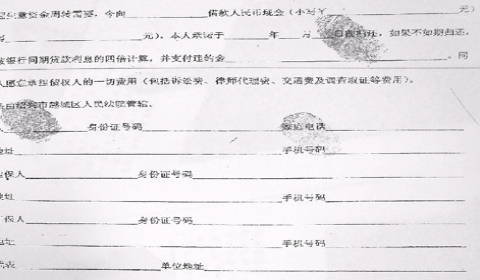 资金周转需要，今向 借款人民币现金（小写￥ 元）
元），本人承诺于 年 月 日 ，如果不如期归还，
银行同期贷款利息的四倍计算，并支付违约金 。同
人愿意承担债权人的一切费用（包括诉讼费、律师代理费、交通费及调查取证等费用）。
城区人民法院管辖。
身份证号码 联系电话
地址 手机号码
担保人 身份证号码
地址 手机号码
担保人 身份证号码
地址 手机号码
代表 单位地址